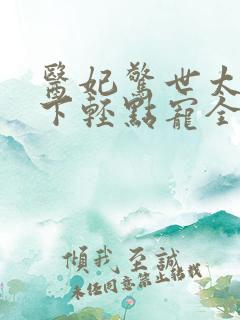 醫妃驚世太
下輕點寵全
傾我至誠
未經同意禁止轉載